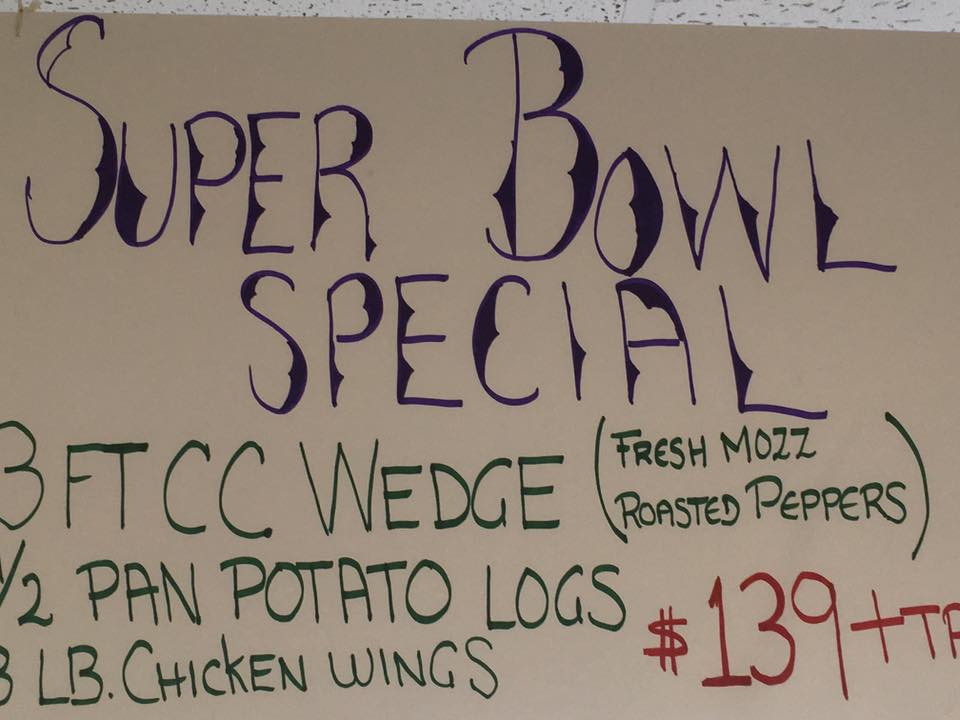 SUPER BOWL
SPECIAL
3 FT CC WEDGE (FRESH MOZZ
ROASTED PEPPERS)
1/2 PAN POTATO LOGS
LB. CHICKEN WINGS
$139+